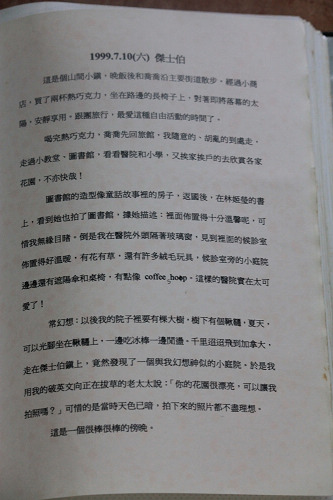 1999.7.10(六) 傑士伯
這是個山間小鎮，晚飯後和喬喬沿主要街道散步。經過小商
店，買了兩杯熱巧克力，坐在路邊的長椅子上，對著即將落幕的太
陽，安靜享用。跟團旅行，最愛這種自由活動的時間了。
喝完熱巧克力，喬喬先回旅館，我隨意的、胡亂的到處走。
走過小教堂、圖書館，看看醫院和小學，又挨家挨戶的去欣賞各家
花園，不亦快哉！
圖書館的造型像童話故事裡的房子，返國後，在林姬瑩的書
上，看到她也拍了圖書館，據她描述：裡面佈置得十分溫馨呢，可
惜我無緣目睹。倒是我在醫院外頭隔著玻璃窗，見到裡面的候診室
佈置得好溫暖，有花有草，還有許多絨毛玩具，候診室旁的小庭院
邊邊還有遮陽傘和桌椅，有點像 coffee_hoop，這樣的醫院實在太可
愛了！
常幻想：以後我的院子裡要有棵大樹，樹下有個鞦韆，夏天，
可以光腳坐在鞦韆上，一邊吃冰棒一邊閒盪。千里迢迢飛到加拿大，
走在傑士伯鎮上，竟然發現了一個與我幻想神似的小庭院。於是我
用我的破英文向正在拔草的老太太說：「你的花園很漂亮，可以讓我
拍照嗎？」可惜的是當時天色已暗，拍下來的照片都不盡理想。
這是一個很棒很棒的傍晚。